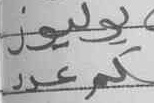 يوليوز
كم عدد